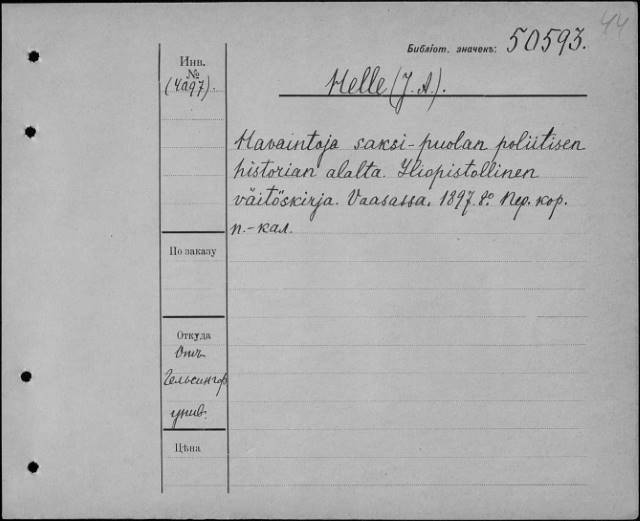 44
Библіот. значекъ: 50593.
Инв.
№
(4a97).
Helle (J. A.).
Havaintoja saksi-puolan poliitisen
historian alalta. Yliopistollinen
väitöskirja. Vaasassa. 1897. 8º. Пер. кор.
п.-кал.
По заказу
Откуда
Отъ
Гельсингф.
унив.
Цѣна